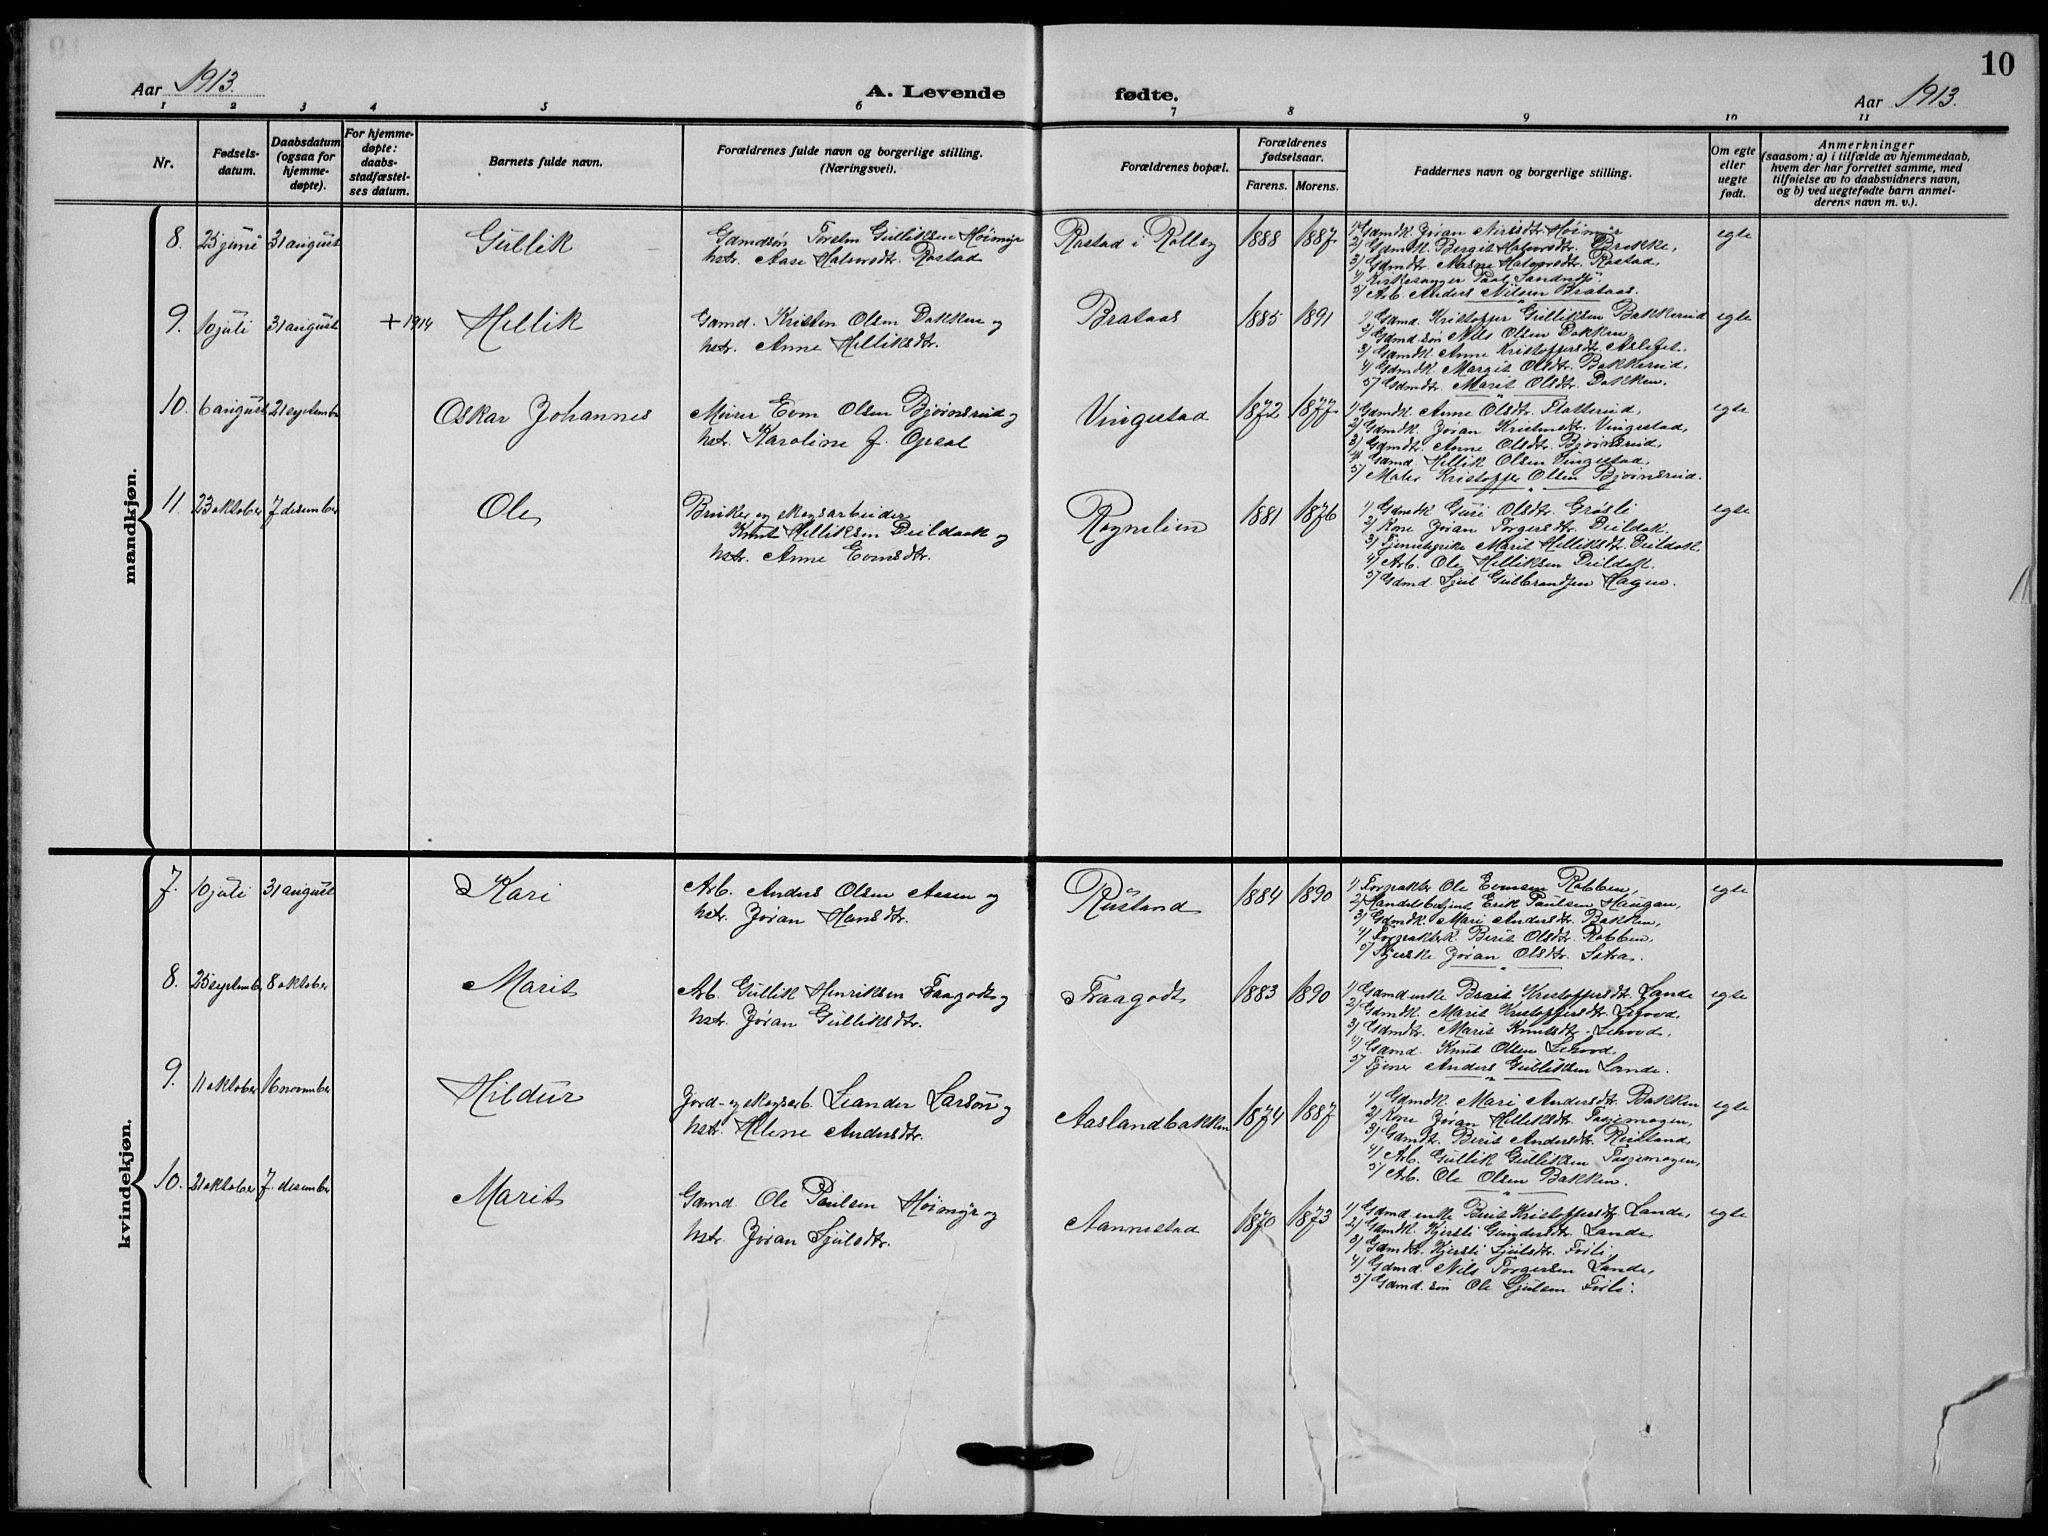 10
Aar 1913.
A. Levende fødte.
Aar 1913.
1 2 3 4 5 6 7 8 9 10 11
Nr.
Fødsels-
datum.
Daabsdatum
(ogsaa for
hjemme-
døpte).
For hjemme-
døpte:
daabs-
stadfæstel-
ses datum.
Barnets fulde navn.
Forældrenes fulde navn og borgerlige stilling.
(Næringsvei).
Forældrenes bopæl.
Forældrenes
fødselsaar.
Farens. Morens.
Faddernes navn og borgerlige stilling.
Om egte
eller
uegte
født.
Anmerkninger
(saasom: a) i tilfælde av hjemmedaab,
hvem der har forrettet samme, med
tilføielse av to daabsvidners navn,
og b) ved uegtefødte barn anmel-
derens navn m. v.).
mandkjøn.
8. 25 juni 31 august Gullik
Gdmdsøn Torsten Gulliksen Høimyr
hstr. Aase Halvorsdtr. Rostad
Rostad i Rolleg 1888 1887
1) Gdmdk. Jøran Nirisdtr. Høimyr
2) Gdmdk. Bergit Halvorsdtr. Brekke,
3) Gdmdtr. Halvorsdtr. Rostad,
4) Kirkesanger Paal Sandnes
5) Arb. Anders Nilsen Brataas.
egte
9. 10 juli 31 august + 1914 Hellik
Gdmd. Kristen Olsen Dokken og
hstr. Anne Helliksdtr.
Brataas 1885 1891
1) Gdmd. Kristoffer Gulliksen Bakkerud
2) Gdmd. søn Nils Olsen Dokken
3) Gdmdk. Anne Kristoffersdtr. Aslefet.
4) Gdmdk. Margit Olsdtr. Bakkerud.
5) Gdmdtr. Marit Olsdtr. Dokken.
egte
10. 6 august 21 september Oskar Johannes
Murer Even Olsen Bjørnsrud og
hstr. Karoline f. Opsal
Vingestad 1872 1877
1) Gdmdk. Anne Olsdtr. Flatterud,
2) Gdmdk. Jøran Vingestad,
3) Gdmdtr. Anne Olsdtr. Bjørnsrud,
4) Gdmd. Hellik Olsen Vingestad,
5) Maler Kristoffer Olsen Bjørnsrud.
egte
11. 23 oktober 7 desember Ole
Bruker og skogsarbeider
Knut Helliksen Deildaak og
hstr. Anne Evensdtr.
Rognelien 1881 1876
1) Gdmdk. Guri Olsdtr. Grøsli
2) Kone Jøran Torgersdtr. Deildok,
3) Tjenestepike Marit Helliksdtr. Deildok
4) Arb. Ole Helliksen Deildok.
5) Gdmd. Sjul Gulbrandsen Hagen.
egte
kvindekjøn.
7. 10 juli 31 august Kari
Arb. Anders Olsen Aasen og
hstr. Jøran Hansdtr.
Rustand 1884 1890
1) Forpakter Ole Evensen Robben,
2) Handelsbetjent Erik Paulsen Haugan,
3) Gdmdk. Mari Andersdtr. Bakken,
4) Forpakterk. Berit Olsdtr. Robben,
5) Jøran Olsdtr. Sætra.
egte
8. 25 september 8 oktober Marit
Arb. Gullik Henriksen Fraagodt og
hstr. Jøran Gulliksdtr.
Fraagodt 1883 1890
1) Gdmd enke Kristoffersdtr. Lande
2) Gdmdk. Marit Kristoffersdtr. Lehovd,
3) Gdmdtr. Marit Knutsdtr. Lehovd,
4) Gdmd. Knut Olsen Lehovd,
5) Tjener Anders Gulliksen Lande.
egte
9. 11 oktober 16 november Hildur
Jord- og skogsarb. Leander Larsøn og
hstr. Helene Andersdtr.
Aaslandbakken 1874 1887
1) Gdmdk. Mari Andersdtr. Bakken
2) Kone Jøran Helliksdtr. Tosjemogen,
3) Gdmdtr. Berit Andersdtr. Rustand,
4) Arb. Gullik Gulliksen Tosjemogen,
5) Arb. Ole Olsen Bakken.
egte
10. 21 oktober 7. desember Marit
Gdmd. Ole Paulsen Høimyr og
hstr. Jøran Sjulsdtr.
Aannestad 1870 1873
1) Gdmd enke Berit Kristoffersdtr. Lande,
2) Gdmdk. Kjersti Gundersdtr. Lande
3) Gdmdtr. Kjersti Sjulsdtr. Førli
4) Gdmd. Nils Torgersen Lande,
5) Gdmd. søn Ole Sjulsen Førli.
egte